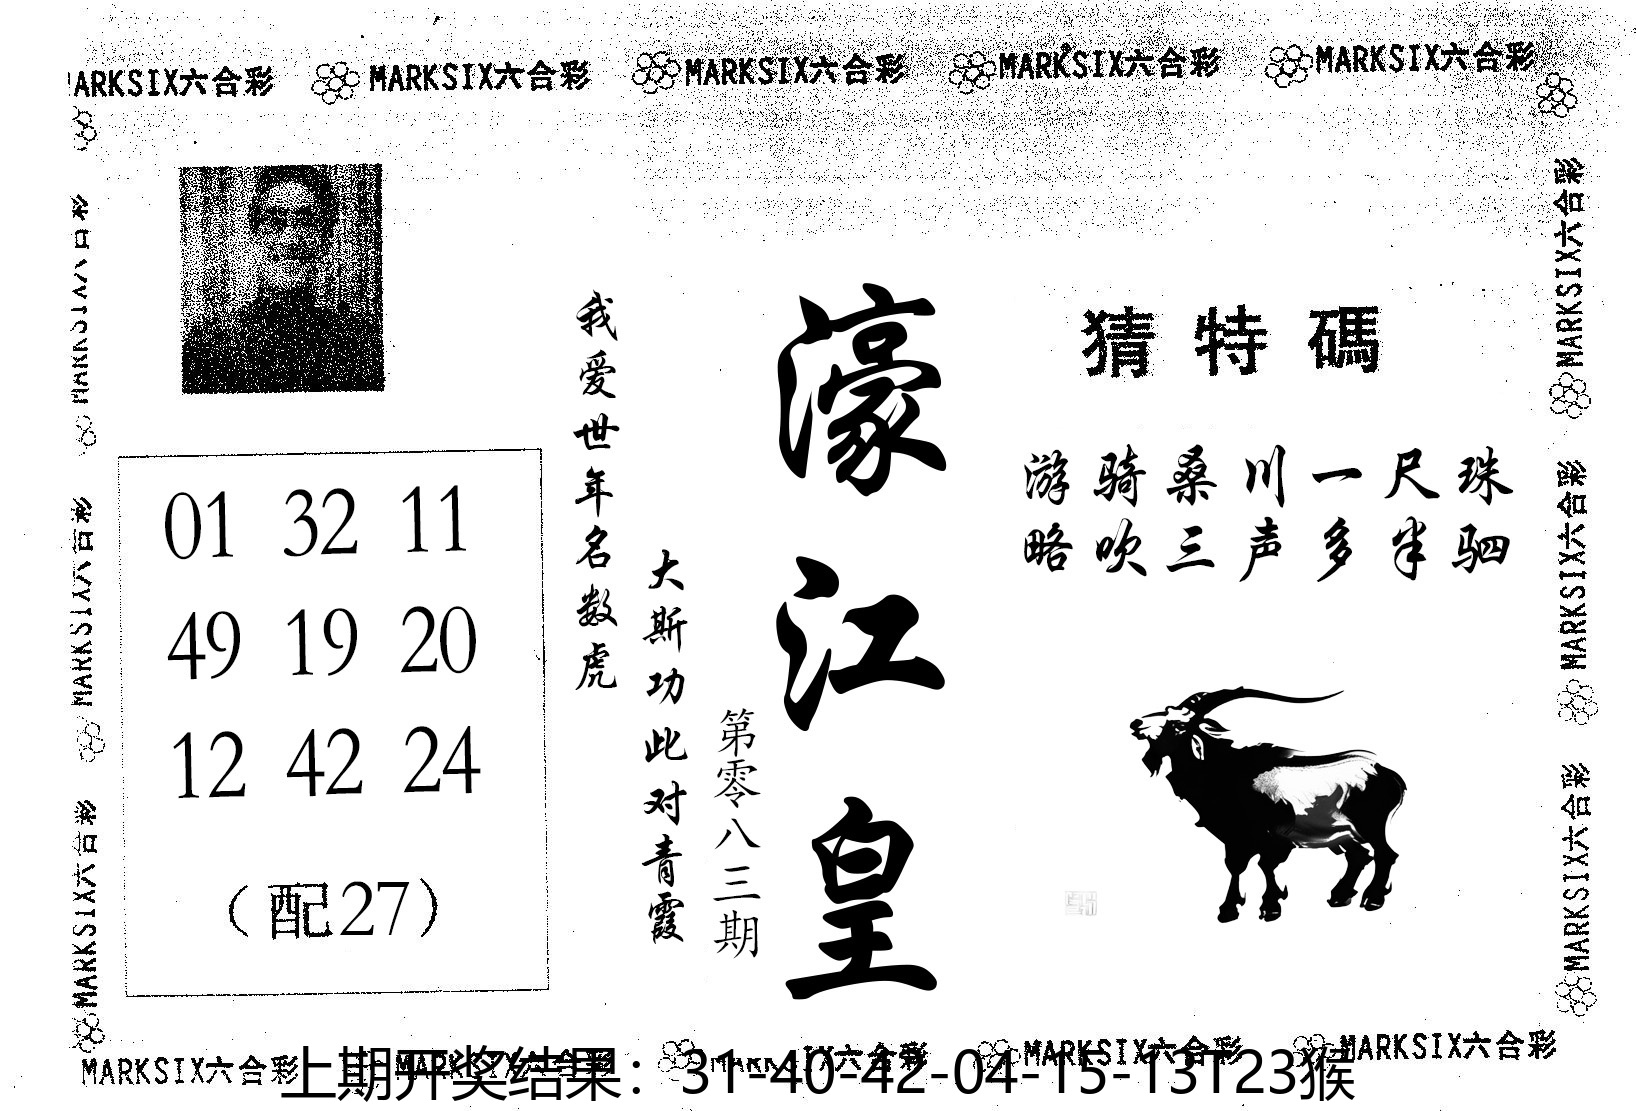 MARKSIX六合彩 MARKSIX六合彩 MARKSIX六合彩 MARKSIX六合彩 MARKSIX六合彩
猜特碼
游骑桑川一尺珠
略吹三声多半驷
濠江皇
第零八三期
大斯功此对青霞
我爱世年名数虎
01 32 11
49 19 20
12 42 24
（配27）
MARKSIX六合彩
MARKSIX六合彩
MARKSIX六合彩
MARKSIX六合彩
MARKSIX六合彩
MARKSIX六合彩
MARKSIX六合彩 MARKSIX六合彩 MARKSIX六合彩 MARKSIX六合彩 MARKSIX六合彩
上期开奖结果：31-40-42-04-15-13T23猴